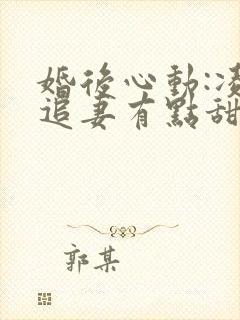 婚後心動:凌
追妻有點甜
郭某